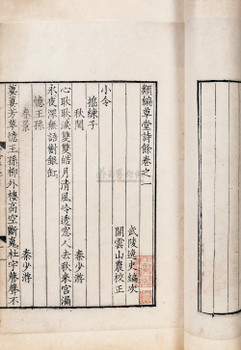 類編草堂詩餘卷之一
武陵逸史編次
開雲山農校正
小令
搗練子
秋閨
秦少游
心耿耿淚雙雙皓月清風冷透窓人去秋來宮漏
永夜深無語對銀缸
憶王孫
春景
秦少游
萋萋芳草憶王孫柳外樓高空斷魂杜宇聲聲不